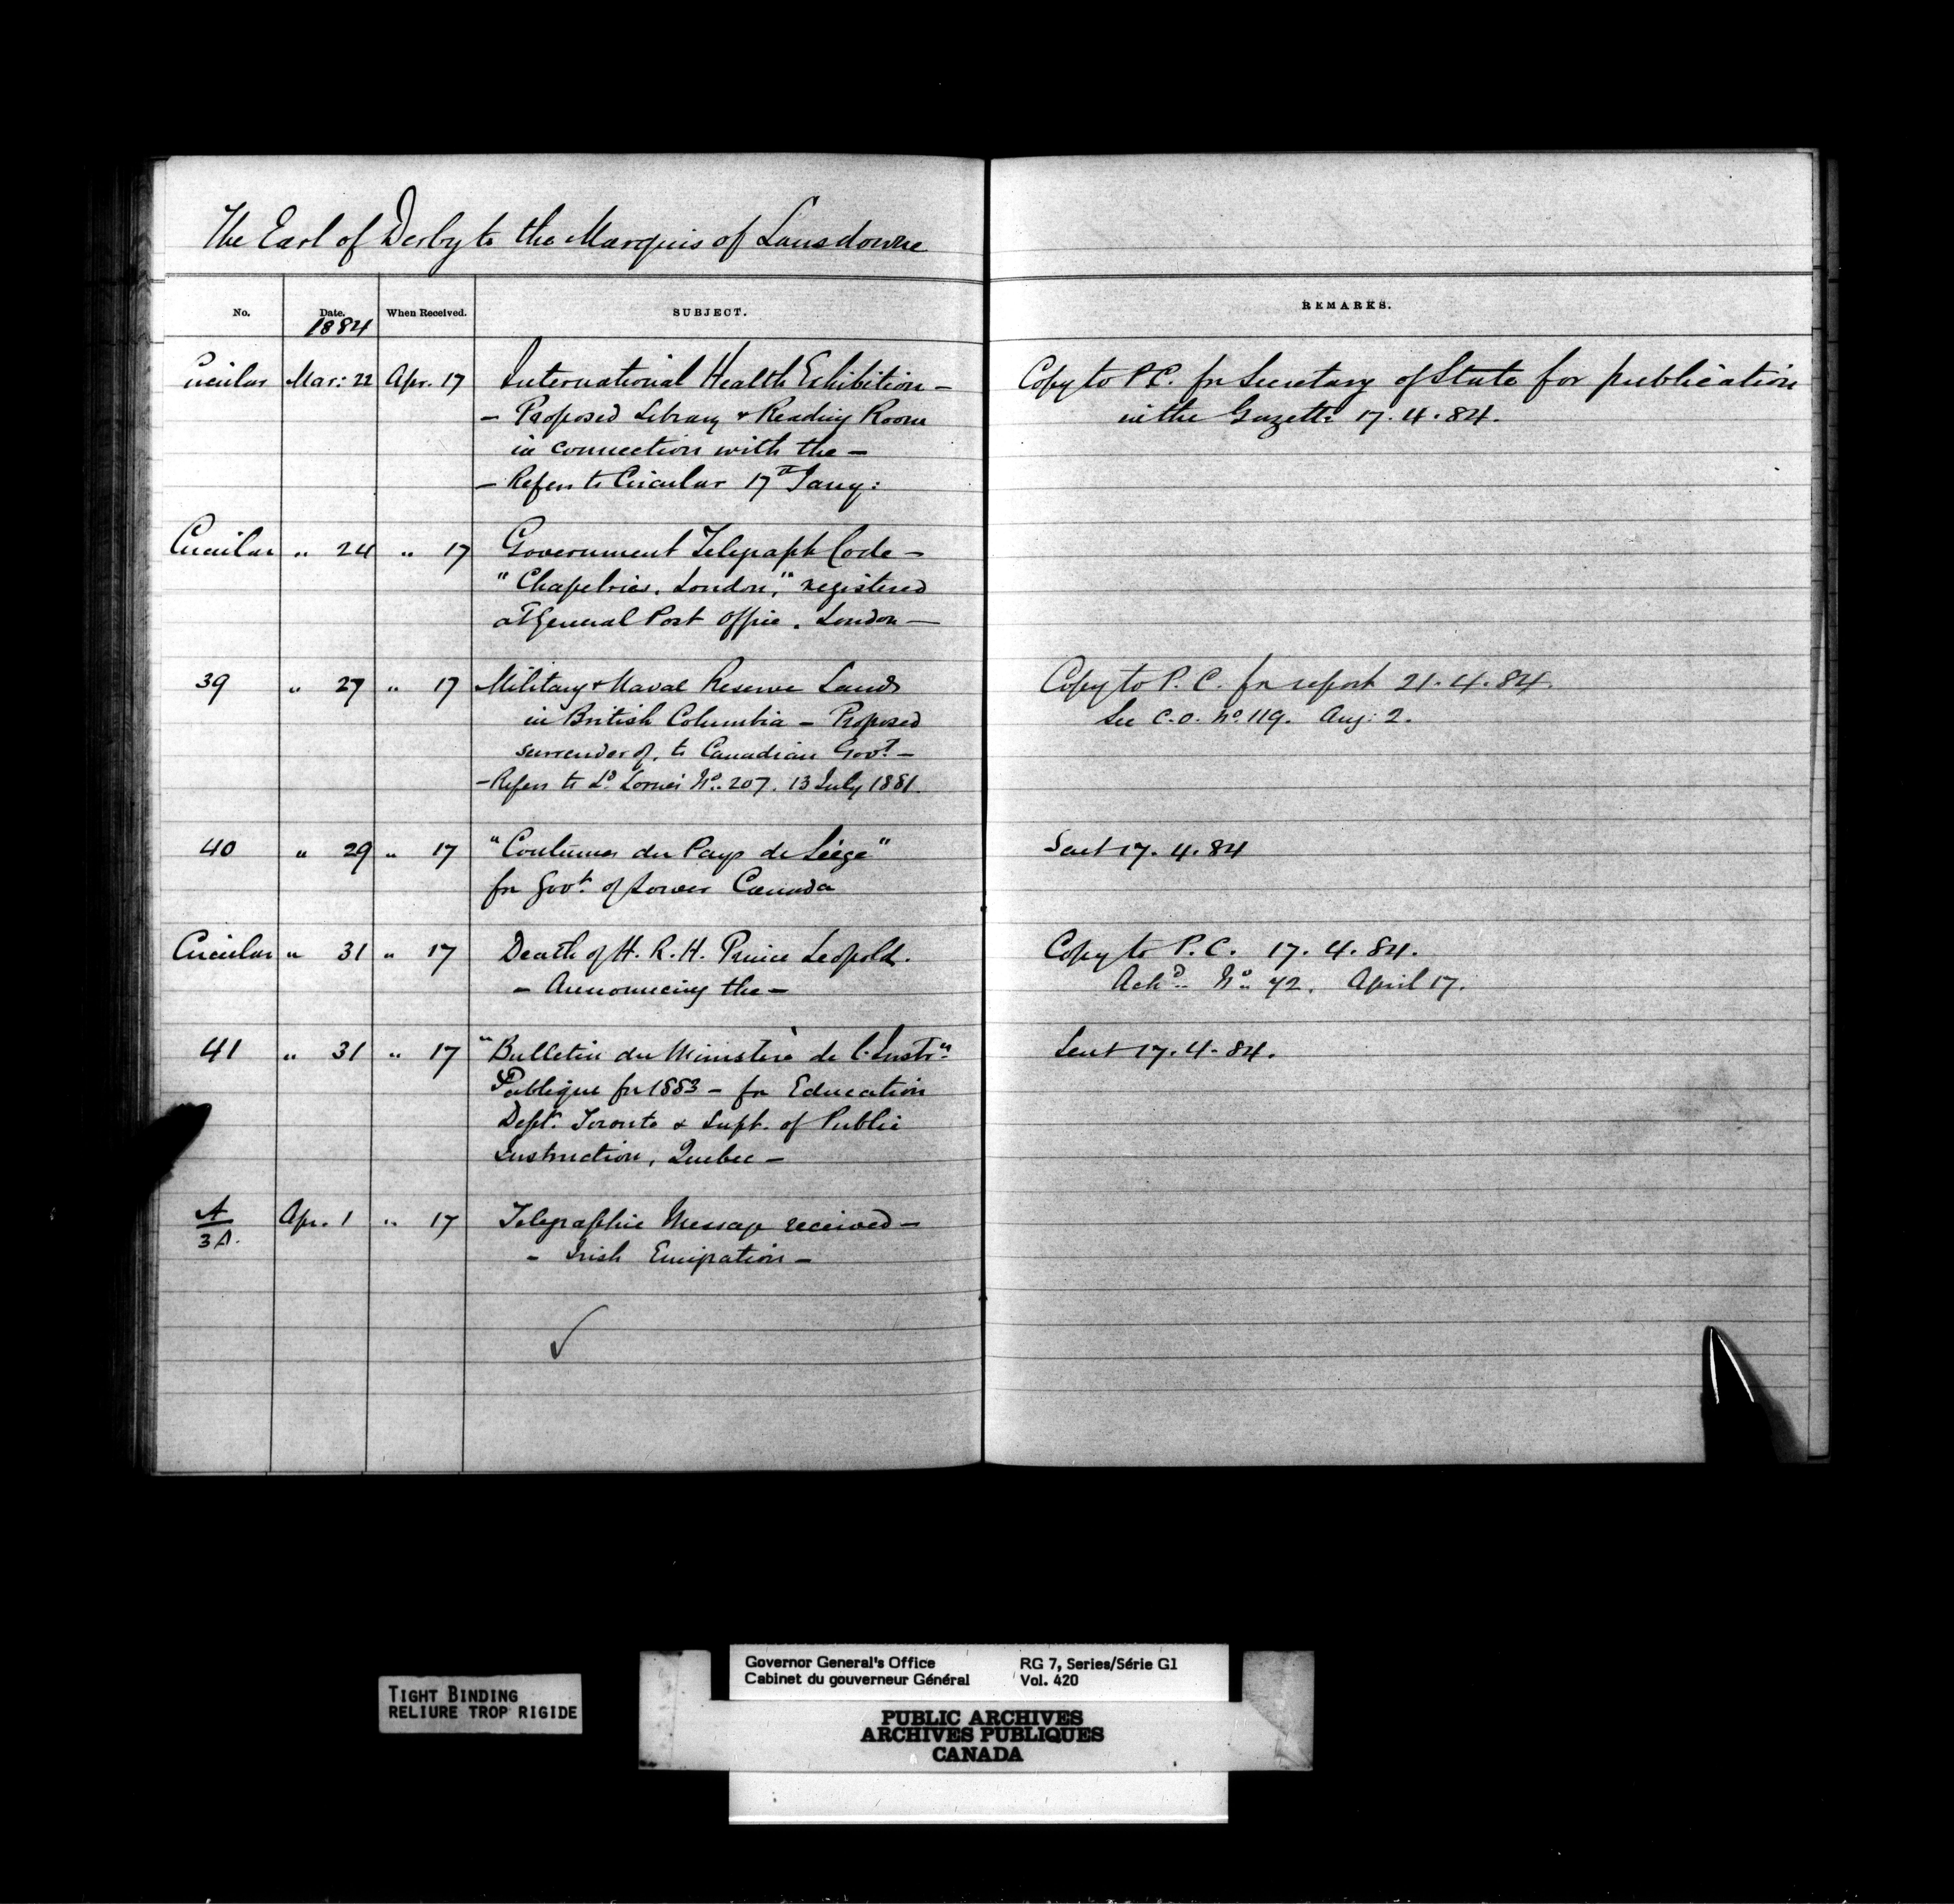 The Earl of Derby to the Marquis of Lansdowne
No. Date. When Received. SUBJECT. REMARKS.
1884
Circular Mar: 22 Apr. 17 International Health Exhibition — Copy to P.C. for Secretary of State for publication
— Proposed Library & Reading Room in the Gazette 17. 4. 84.
in connection with the —
— Refers to Circular 17th Jany:
Circular " 24 " 17 Government Telegraph Code —
"Chapelries, London," registered
at General Post Office, London —
39 " 27 " 17 Military & Naval Reserve Lands Copy to P. C. for report 21. 4. 84.
in British Columbia — Proposed See C.O. No. 119. Aug: 2.
surrender of, to Canadian Govt. —
— Refers to Ld. Lorne's No. 207. 13 July 1881.
40 " 29 " 17 "Coutumes du Pays de Liège" Sent 17. 4. 84
for Govt. of Lower Canada
Circular " 31 " 17 Death of H. R. H. Prince Leopold. Copy to P. C. 17. 4. 84.
— Announcing the — Ackd. No. 72. April 17.
41 " 31 " 17 "Bulletin du Ministère de l'Instrn. Sent 17. 4. 84.
Publique for 1883 — for Education
Dept. Toronto & Supt. of Public
Instruction, Quebec —
A Apr. 1 " 17 Telegraphic Message received —
3A. — Irish Emigration —
✓
TIGHT BINDING
RELIURE TROP RIGIDE
Governor General's Office RG 7, Series/Série G1
Cabinet du gouverneur Général Vol. 420
PUBLIC ARCHIVES
ARCHIVES PUBLIQUES
CANADA